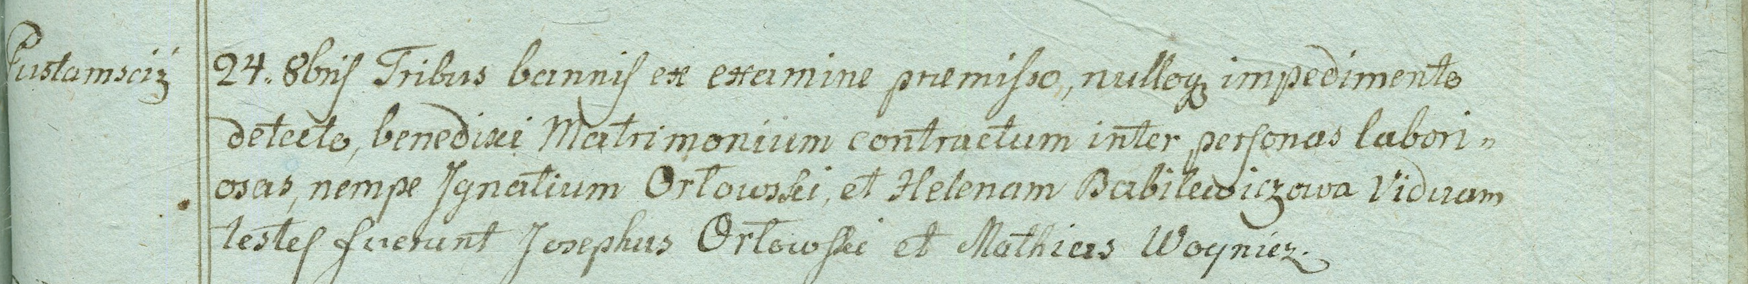 Pustamsciż
24. 8bris Tribus bannis ex examine præmisso, nulloq impedimento
detecto, benedixi Matrimonium contractum inter personas labori-
osas, nempe Jgnatium Orłowski, et Helenam Babilewiczowa Viduam
testes fuerunt Josephus Orłowski et Mathias Woyniez.